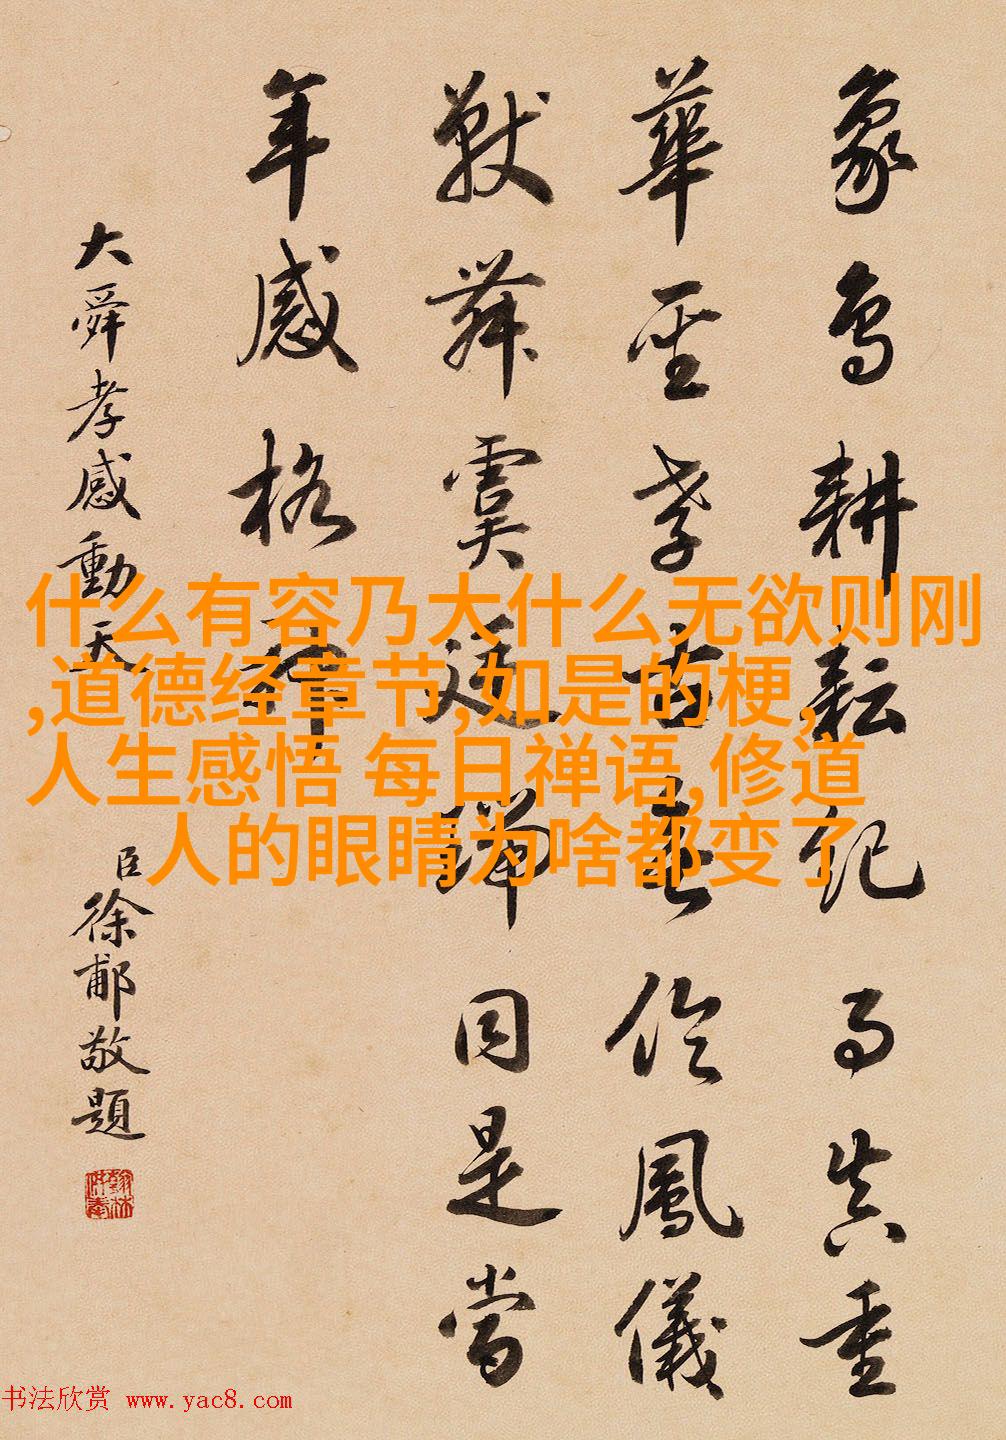 象鳥耕耘紀事真重
華聖孝古無倫鳳儀
獸舞虞廷瑞同是當
年感格神
大舜孝感動天
臣徐郙敬題
什么有容乃大什么无欲则刚
,道德经章节,如是的梗,
人生感悟 每日禅语,修道
人的眼睛为啥都变了
书法欣赏 www.yac8.com